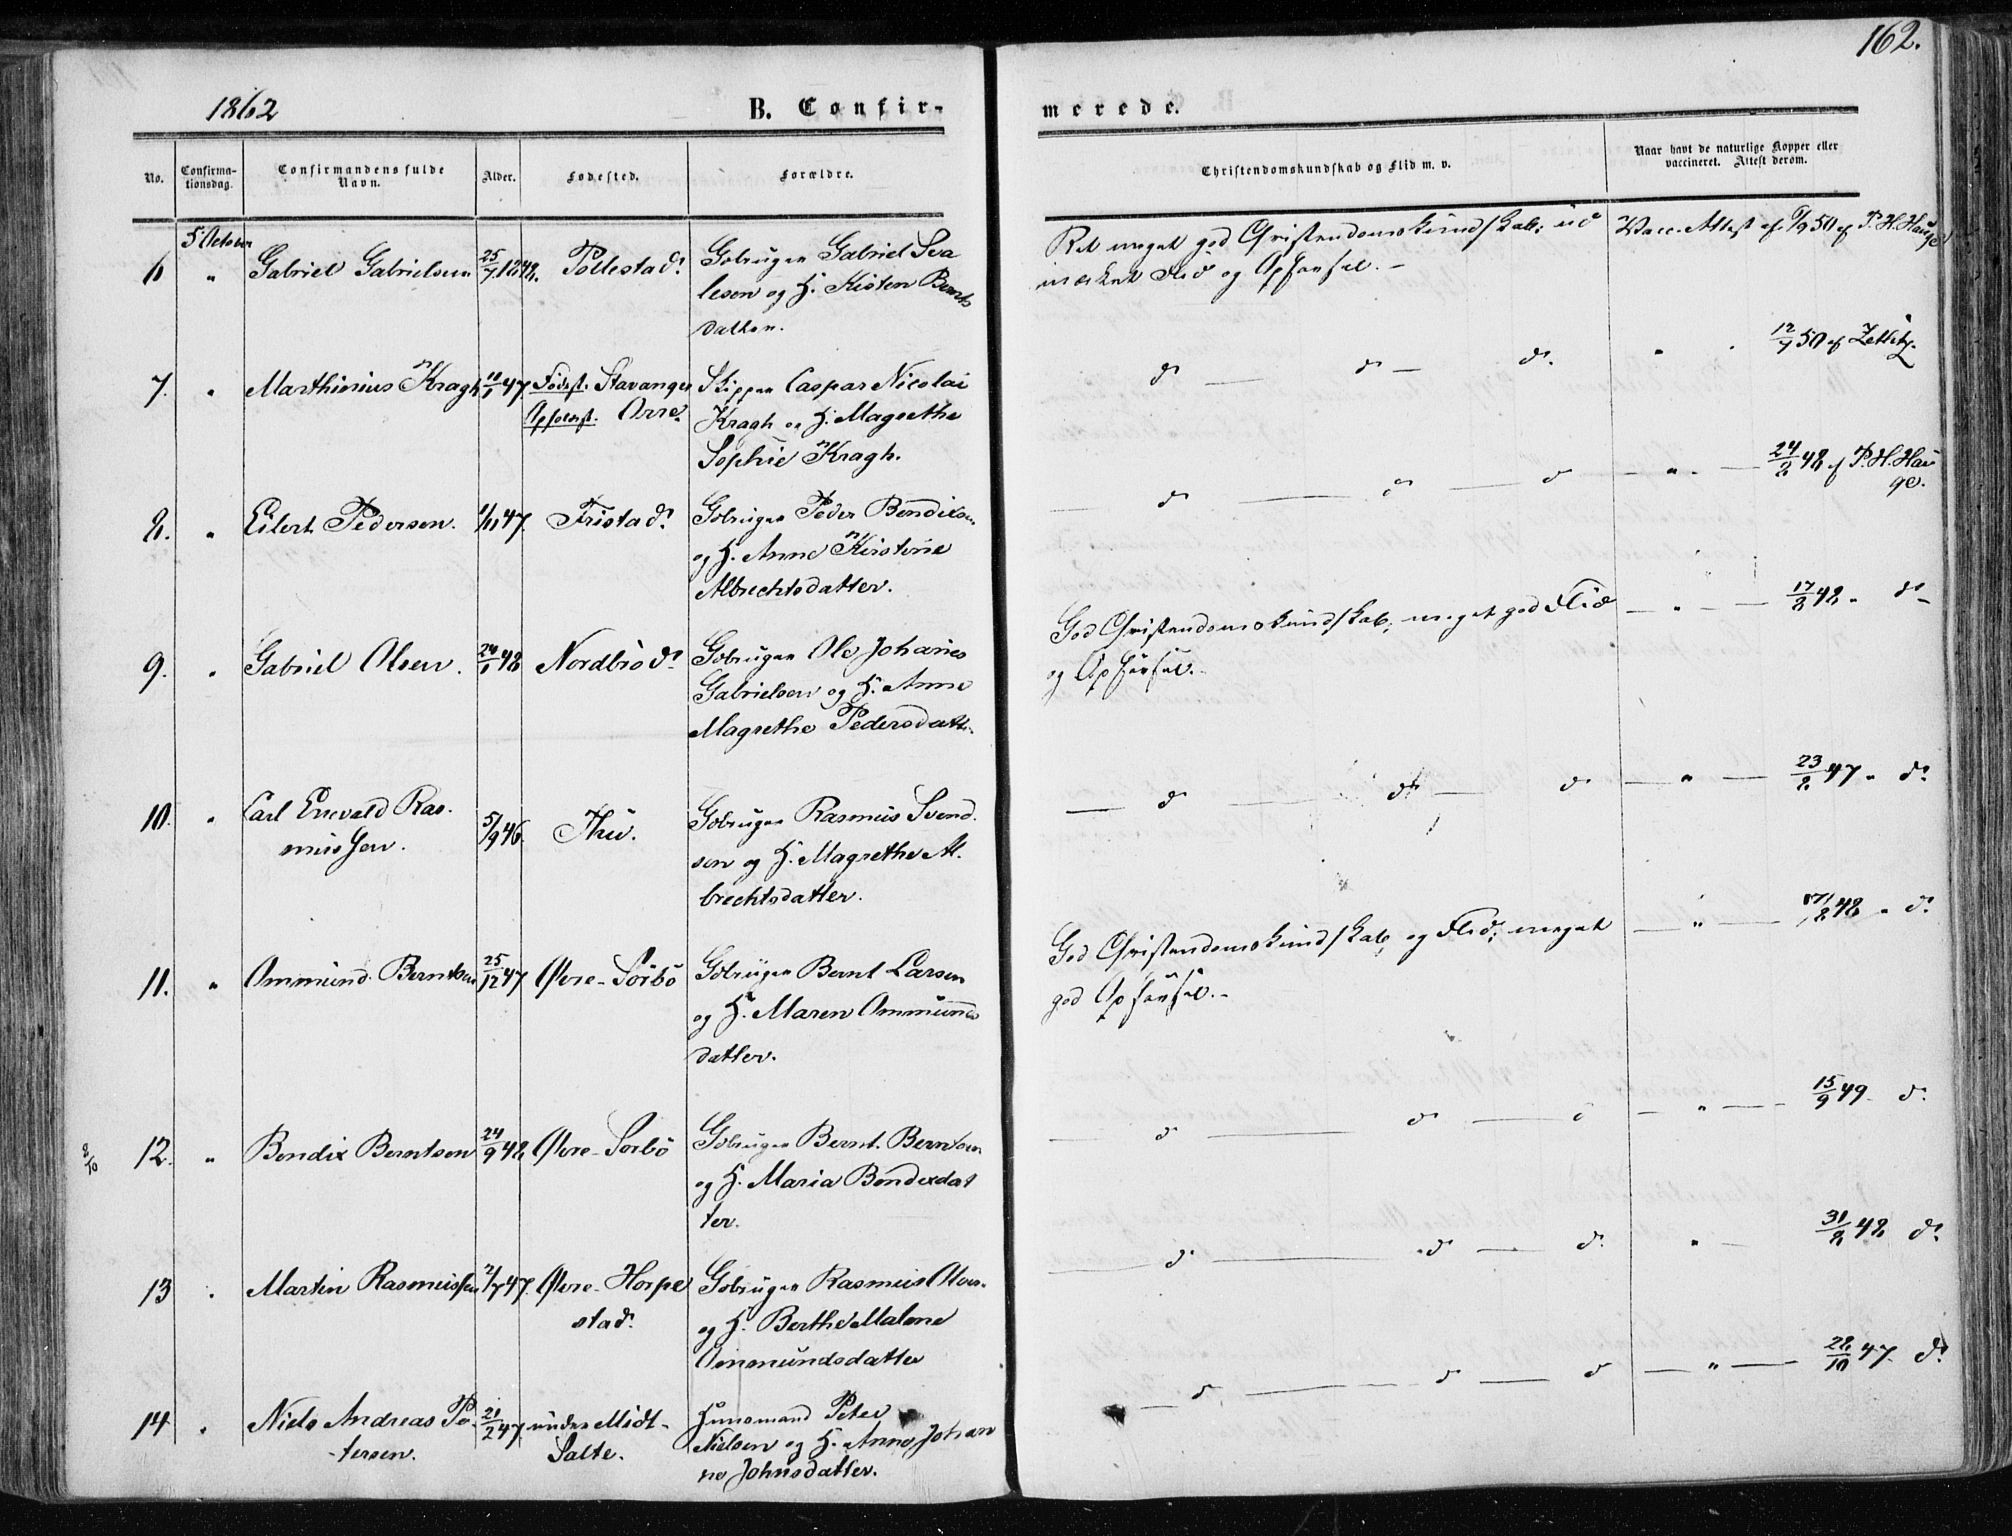 162.
1862
B. Confir-
merede.
No.
Confirma-
tionsdag.
Confirmandens fulde
Navn.
Alder.
Fødested.
Forældre.
Christendomskundskab og Flid m. v.
Naar havt de naturlige Kopper eller
vaccineret. Attest derom.
5 October
6 " Gabriel Gabrielsen 25/7 1848. Pollestad. Gbruger Gabriel Sva
leson og H. Kisten Bernts
datter.
Ret meget god Christendomskundskab; ud
mærket Flid og Opførsel. –
Vacc. Attest af 9/9 50 af P. H. Hau
ge
7. " Marthinius Kragh 11/1 47. Fødest. Stavanger Skipper Caspar Nicolai
Opfostst. Orre. Kragh og H. Magrethe
Sophie Kragh.
do — do — do. " 12/7 50 af Zetlitz.
8. " Eilert Pedersen. 1/11 47. Fristad. Gbruger Peder Bendixen
og H. Anne Kirstine
Albrechtsdatter.
do — do — do — " — 24/2 48 af P. H. Hau
ge.
9. " Gabriel Olsen. 24/1 48 Nordbrød. Gbruger Ole Johanes
Gabrielsen og H. Anne
Magrethe Pedersdatt.
God Christendomskundskab; meget god Flid
og Opførsel. –
— " — 17/8 48 " do
10. " Carl Enevald Ras-
mussen. 5/9 46. Thu. Gbruger Rasmus Svend-
sen og H. Magrethe Al-
brechtsdatter.
— do — do — do — " — 23/2 47 " do.
11. " Ommund Berntsen 25/12 47 Øvre-Sørbø Gbruger Bernt Larsen
og H. Maren Ommunds
datter.
God Christendomskundskab og Flid; meget
god Opførsel. –
— " — 17/8 48 " do.
8/10 12. " Bendix Berntsen 24/9 48 Øvre-Sørbø Gbruger Bernt Berntsen
og H. Maria Bendixdat
ter.
— do — do — do — " — 15/9 49 do.
13 " Martin Rasmussen 2/7 47. Øvre-Horpe
stad. Gbruger Rasmus Olsen
og H. Berthe Malene
Ommundsdatter
— do — do — do. " — 31/8 48 do.
14 " Niels Andreas Pe-
tersen. 21/2 47. under Midt-
Salte. Huusmand Peter
Nielsen og H. Anne Johan
ne Johnsdatter.
— do — do — do — " — 28/10 47. do.